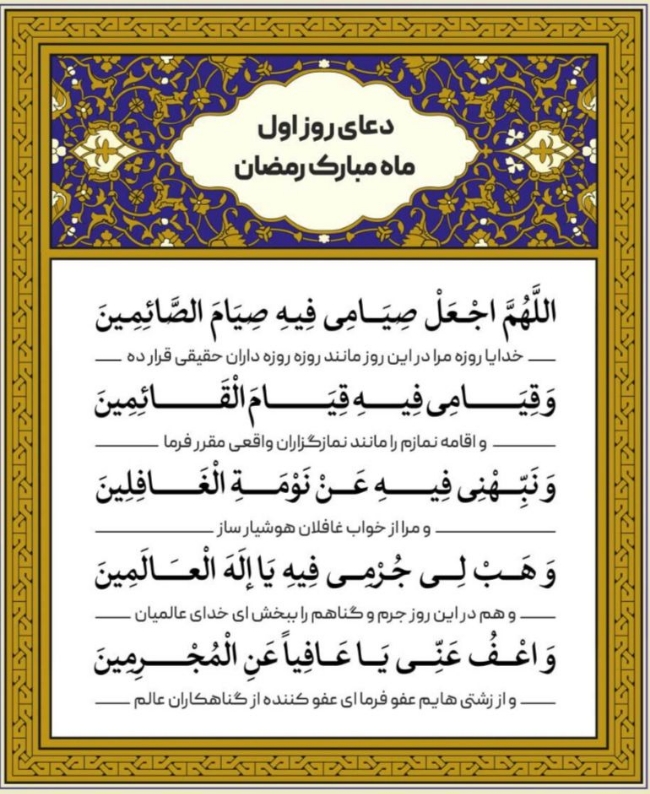 دعای روز اول
ماه مبارک رمضان
اللَّهُمَّ اجْعَلْ صِیَامِی فِیهِ صِیَامَ الصَّائِمِینَ
خدایا روزه مرا در این روز مانند روزه روزه داران حقیقی قرار ده
وَ قِیَامِی فِیهِ قِیَامَ الْقَائِمِینَ
و اقامه نمازم را مانند نمازگزاران واقعی مقرر فرما
وَ نَبِّهْنِی فِیهِ عَنْ نَوْمَةِ الْغَافِلِینَ
و مرا از خواب غافلان هوشیار ساز
وَ هَبْ لِی جُرْمِی فِیهِ یَا إِلَهَ الْعَالَمِینَ
و هم در این روز جرم و گناهم را ببخش ای خدای عالمیان
وَ اعْفُ عَنِّی یَا عَافِیاً عَنِ الْمُجْرِمِینَ
و از زشتی هایم عفو فرما ای عفو کننده از گناهکاران عالم